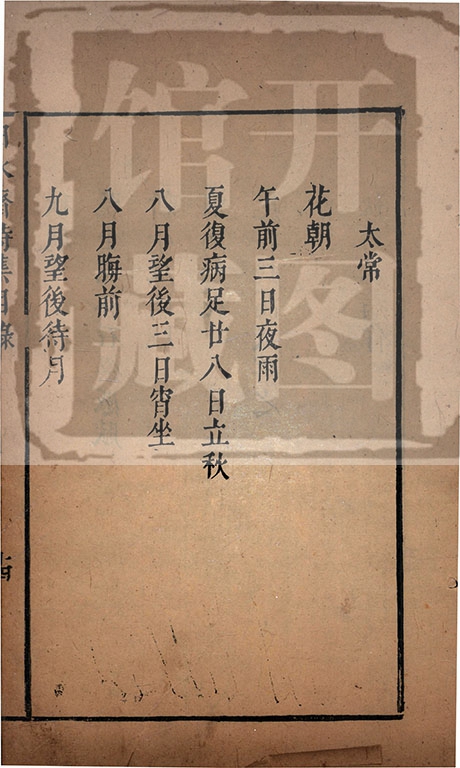 太常
花朝
午前三日夜雨
夏復病足廿八日立秋
八月望後三日宵坐
八月晦前
九月望後待月
水齋詩集目錄
十四
开图
馆藏